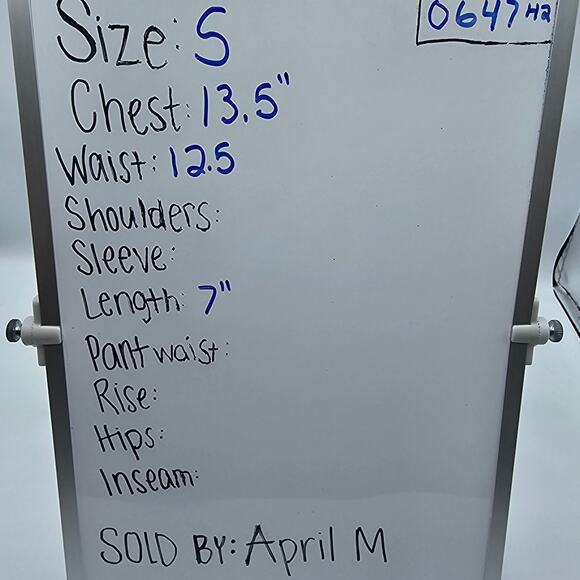 0647H2
Size: S
Chest: 13.5"
Waist: 12.5
Shoulders:
Sleeve:
Length: 7"
Pant waist:
Rise:
Hips:
Inseam:
SOLD BY: April M